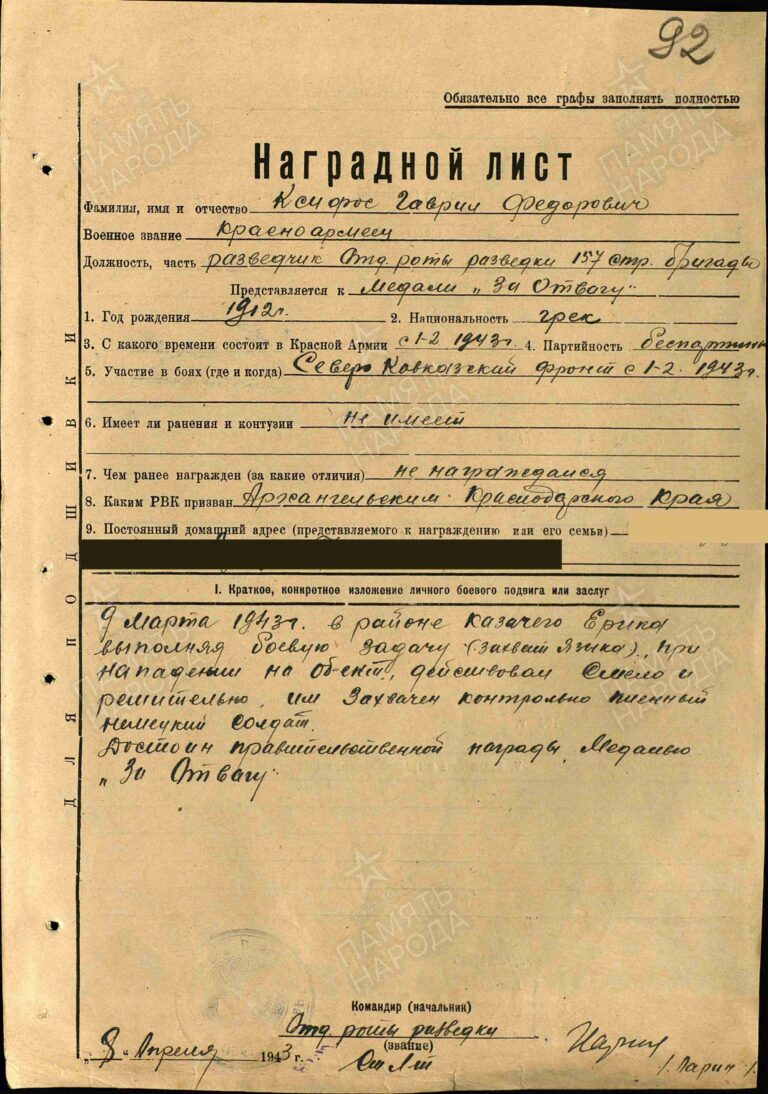 92
Обязательно все графы заполнять полностью
Наградной лист
Фамилия, имя и отчество Ксифос Гаврил Федорович
Военное звание Красноармеец
Должность, часть разведчик Отд. роты разведки 157 стр. бригады
Представляется к медали „За Отвагу"
1. Год рождения 1912г. 2. Национальность грек
3. С какого времени состоит в Красной Армии с 1-2 1943г. 4. Партийность беспартийн
5. Участие в боях (где и когда) Северо Кавказский фронт с 1-2. 1943г.
6. Имеет ли ранения и контузии не имеет
7. Чем ранее награжден (за какие отличия) не награждался
8. Каким РВК призван Архангельским Краснодарского края
9. Постоянный домашний адрес (представляемого к награждению или его семьи)
I. Краткое, конкретное изложение личного боевого подвига или заслуг
9 Марта 1943г. в районе Казачего Ерика
выполняя боевую задачу (захват Языка), при
нападении на обект, действовал смело и
решительно, им захвачен контрольно пленный
немецкий солдат.
Достоин правительственной награды, Медалью
„За Отвагу"
ДЛЯ ПОДШИВКИ
Командир (начальник)
Отд. роты разведки
(звание)
Ст Лт
„8" Апреля 1943 г.
ПАМЯТЬ НАРОДА
ПАМЯТЬ НАРОДА
ПАМЯТЬ НАРОДА